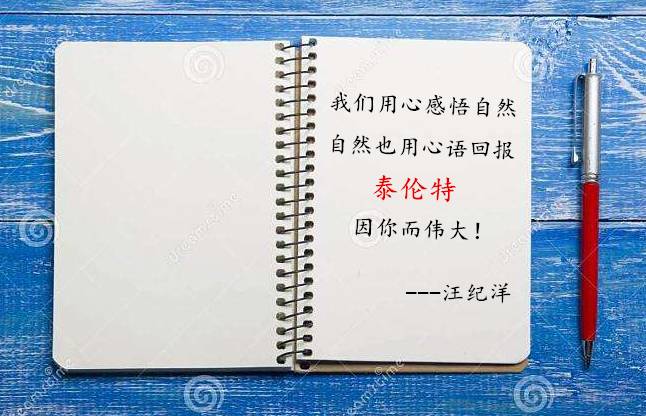 我们用心感悟自然
自然也用心语回报
泰伦特
因你而伟大!
---汪纪洋